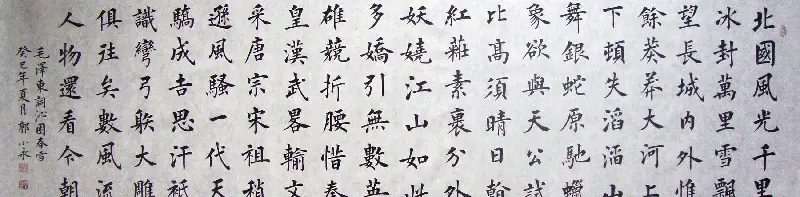 北國風光千里
冰封萬里雪飄
望長城內外惟
餘莽莽大河上
下頓失滔滔山
舞銀蛇原馳蠟
象欲與天公試
比高須晴日
紅莊素裹分外
妖嬈江山如此
多嬌引無數英
雄競折腰惜秦
皇漢武畧輸文
采唐宗宋祖稍
遜風騷一代天
驕成吉思汗祇
識彎弓射大雕
俱往矣數風流
人物還看今朝
毛澤東詞沁園春雪
癸巳年夏月郭小永